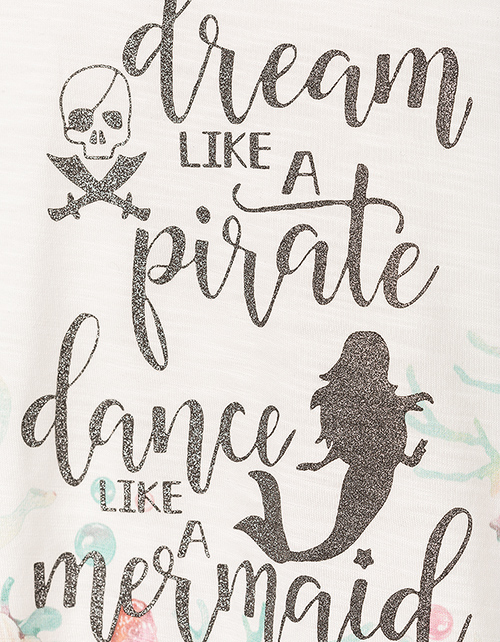 dream
LIKE A
pirate
dance
LIKE
A
mermaid